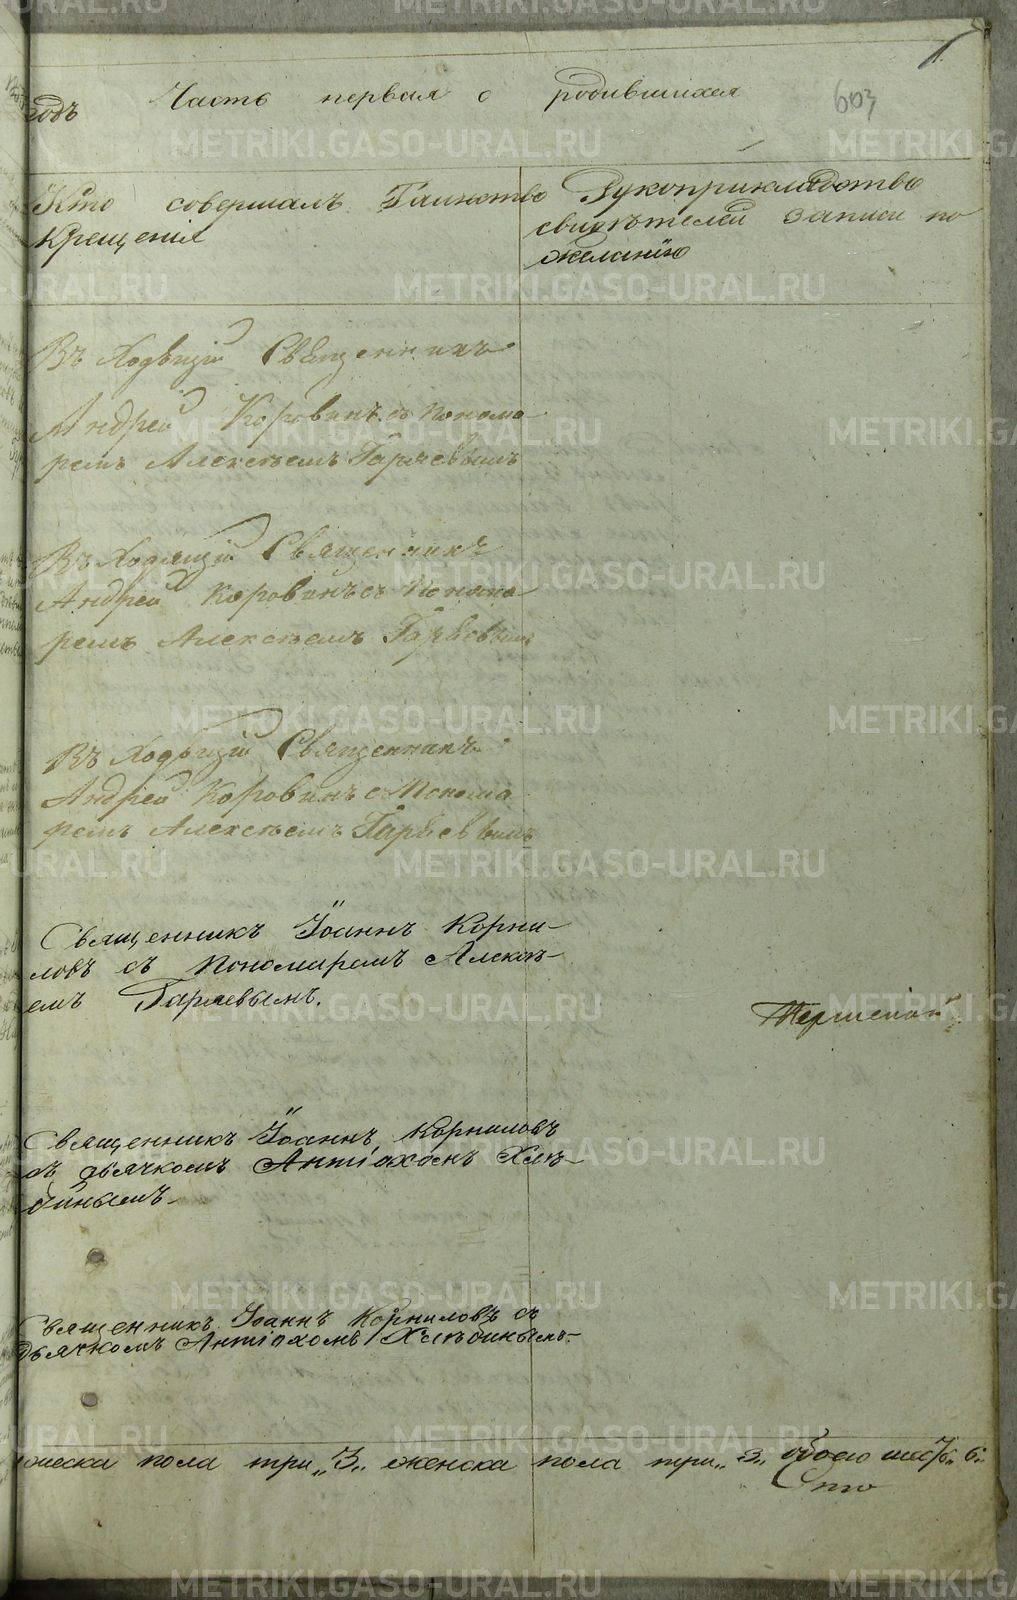 1.
603
годъ Часть первая о родившихся
Кто совершалъ Таинство
Крещенія
Рукоприкладство
свидѣтелей записи по
желанію
Въ Ходящій Священникъ
Андрей Коровинъ съ Понома
ремъ Алексѣемъ Гаряевымъ
Въ Ходящій Священникъ
Андрей Коровинъ съ Понома
ремъ Алексѣемъ Гаряевымъ
Въ Ходящій Священникъ
Андрей Коровинъ с Понома
ремъ Алексѣемъ Гаряевымъ
Священникъ Іоаннъ Корни-
ловъ съ Пономаремъ Алексѣ-
емъ Гаряевымъ.
Священникъ Іоаннъ Корниловъ
съ дьячкомъ Антіохомъ Хлѣ-
бинымъ
Священникъ Іоаннъ Корниловъ съ
дьячкомъ Антіохомъ Хлѣбинымъ.
мужеска пола три „3„ женска пола три „3„ обоего шесть „6„
METRIKI.GASO-URAL.RU